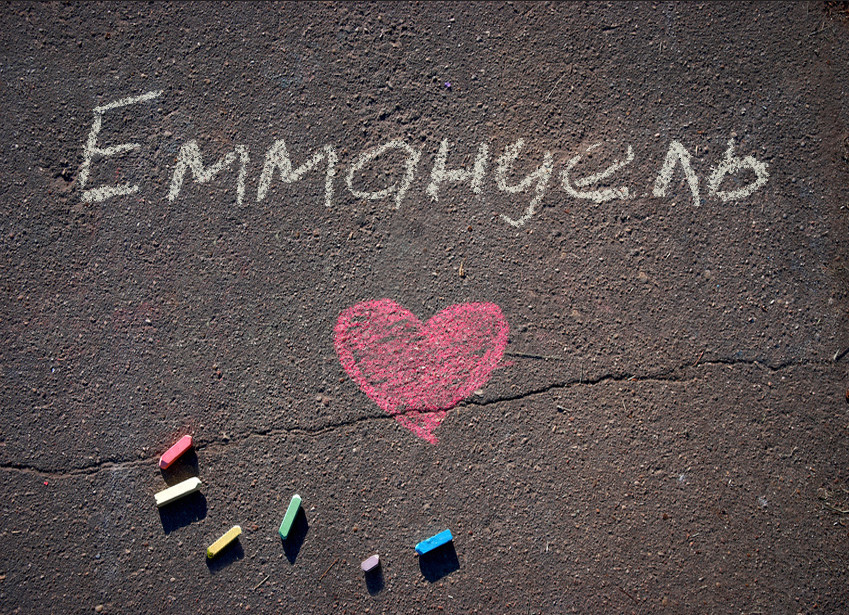 Еммануель